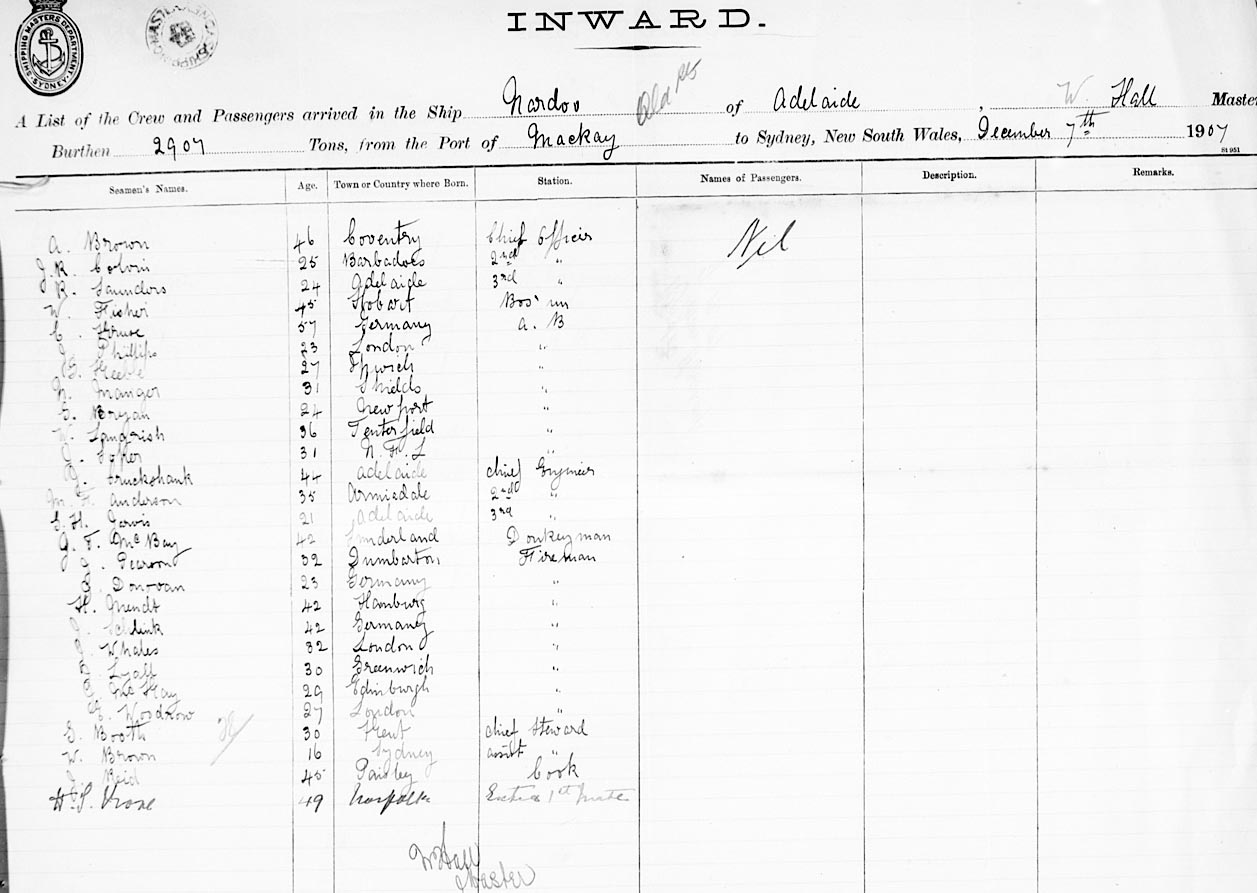 INWARD.
SHIPPING MASTERS DEPARTMENT SYDNEY
A List of the Crew and Passengers arrived in the Ship Nardoo of Adelaide, W. Hall Master
Burthen 2907 Tons, from the Port of Mackay to Sydney, New South Wales, December 7th 1907
St 951
Seamen's Names. Age. Town or Country where Born. Station. Names of Passengers. Description. Remarks.
A. Brown 46 Coventry Chief Officer Nil
J. R. Colvin 25 Barbadoes 2nd "
R. Saunders 24 Adelaide 3rd "
W. Fisher 45 Hobart Bos'un
C. 57 Germany A. B
J. Phillips 23 London "
27 Ipwich "
31 Shields "
Bryan 24 Newport "
W. Langrish 36 Tenterfield "
31 N. F. L "
J. Cruckshank 44 Adelaide Chief Engineer
M. F. Anderson 35 Armiedale 2nd "
H. Jarvis 21 Adelaide 3rd "
J. F. McBay 42 Sunderland Donkeyman
J. Pearson 32 Dumbarton Fireman
Donovan 23 Germany "
H. 42 Hamburg "
Schlink 42 Germany "
Whales 32 London "
Lyall 30 Greenwich "
McHay 29 Edinburgh "
Woodrow 27 London "
G. Booth 30 Kent Chief Steward
W. Brown 16 Sydney assist "
J. Reid 45 Paisley Cook
49 Norfolk Extra 1st Mate
W Hall
Master